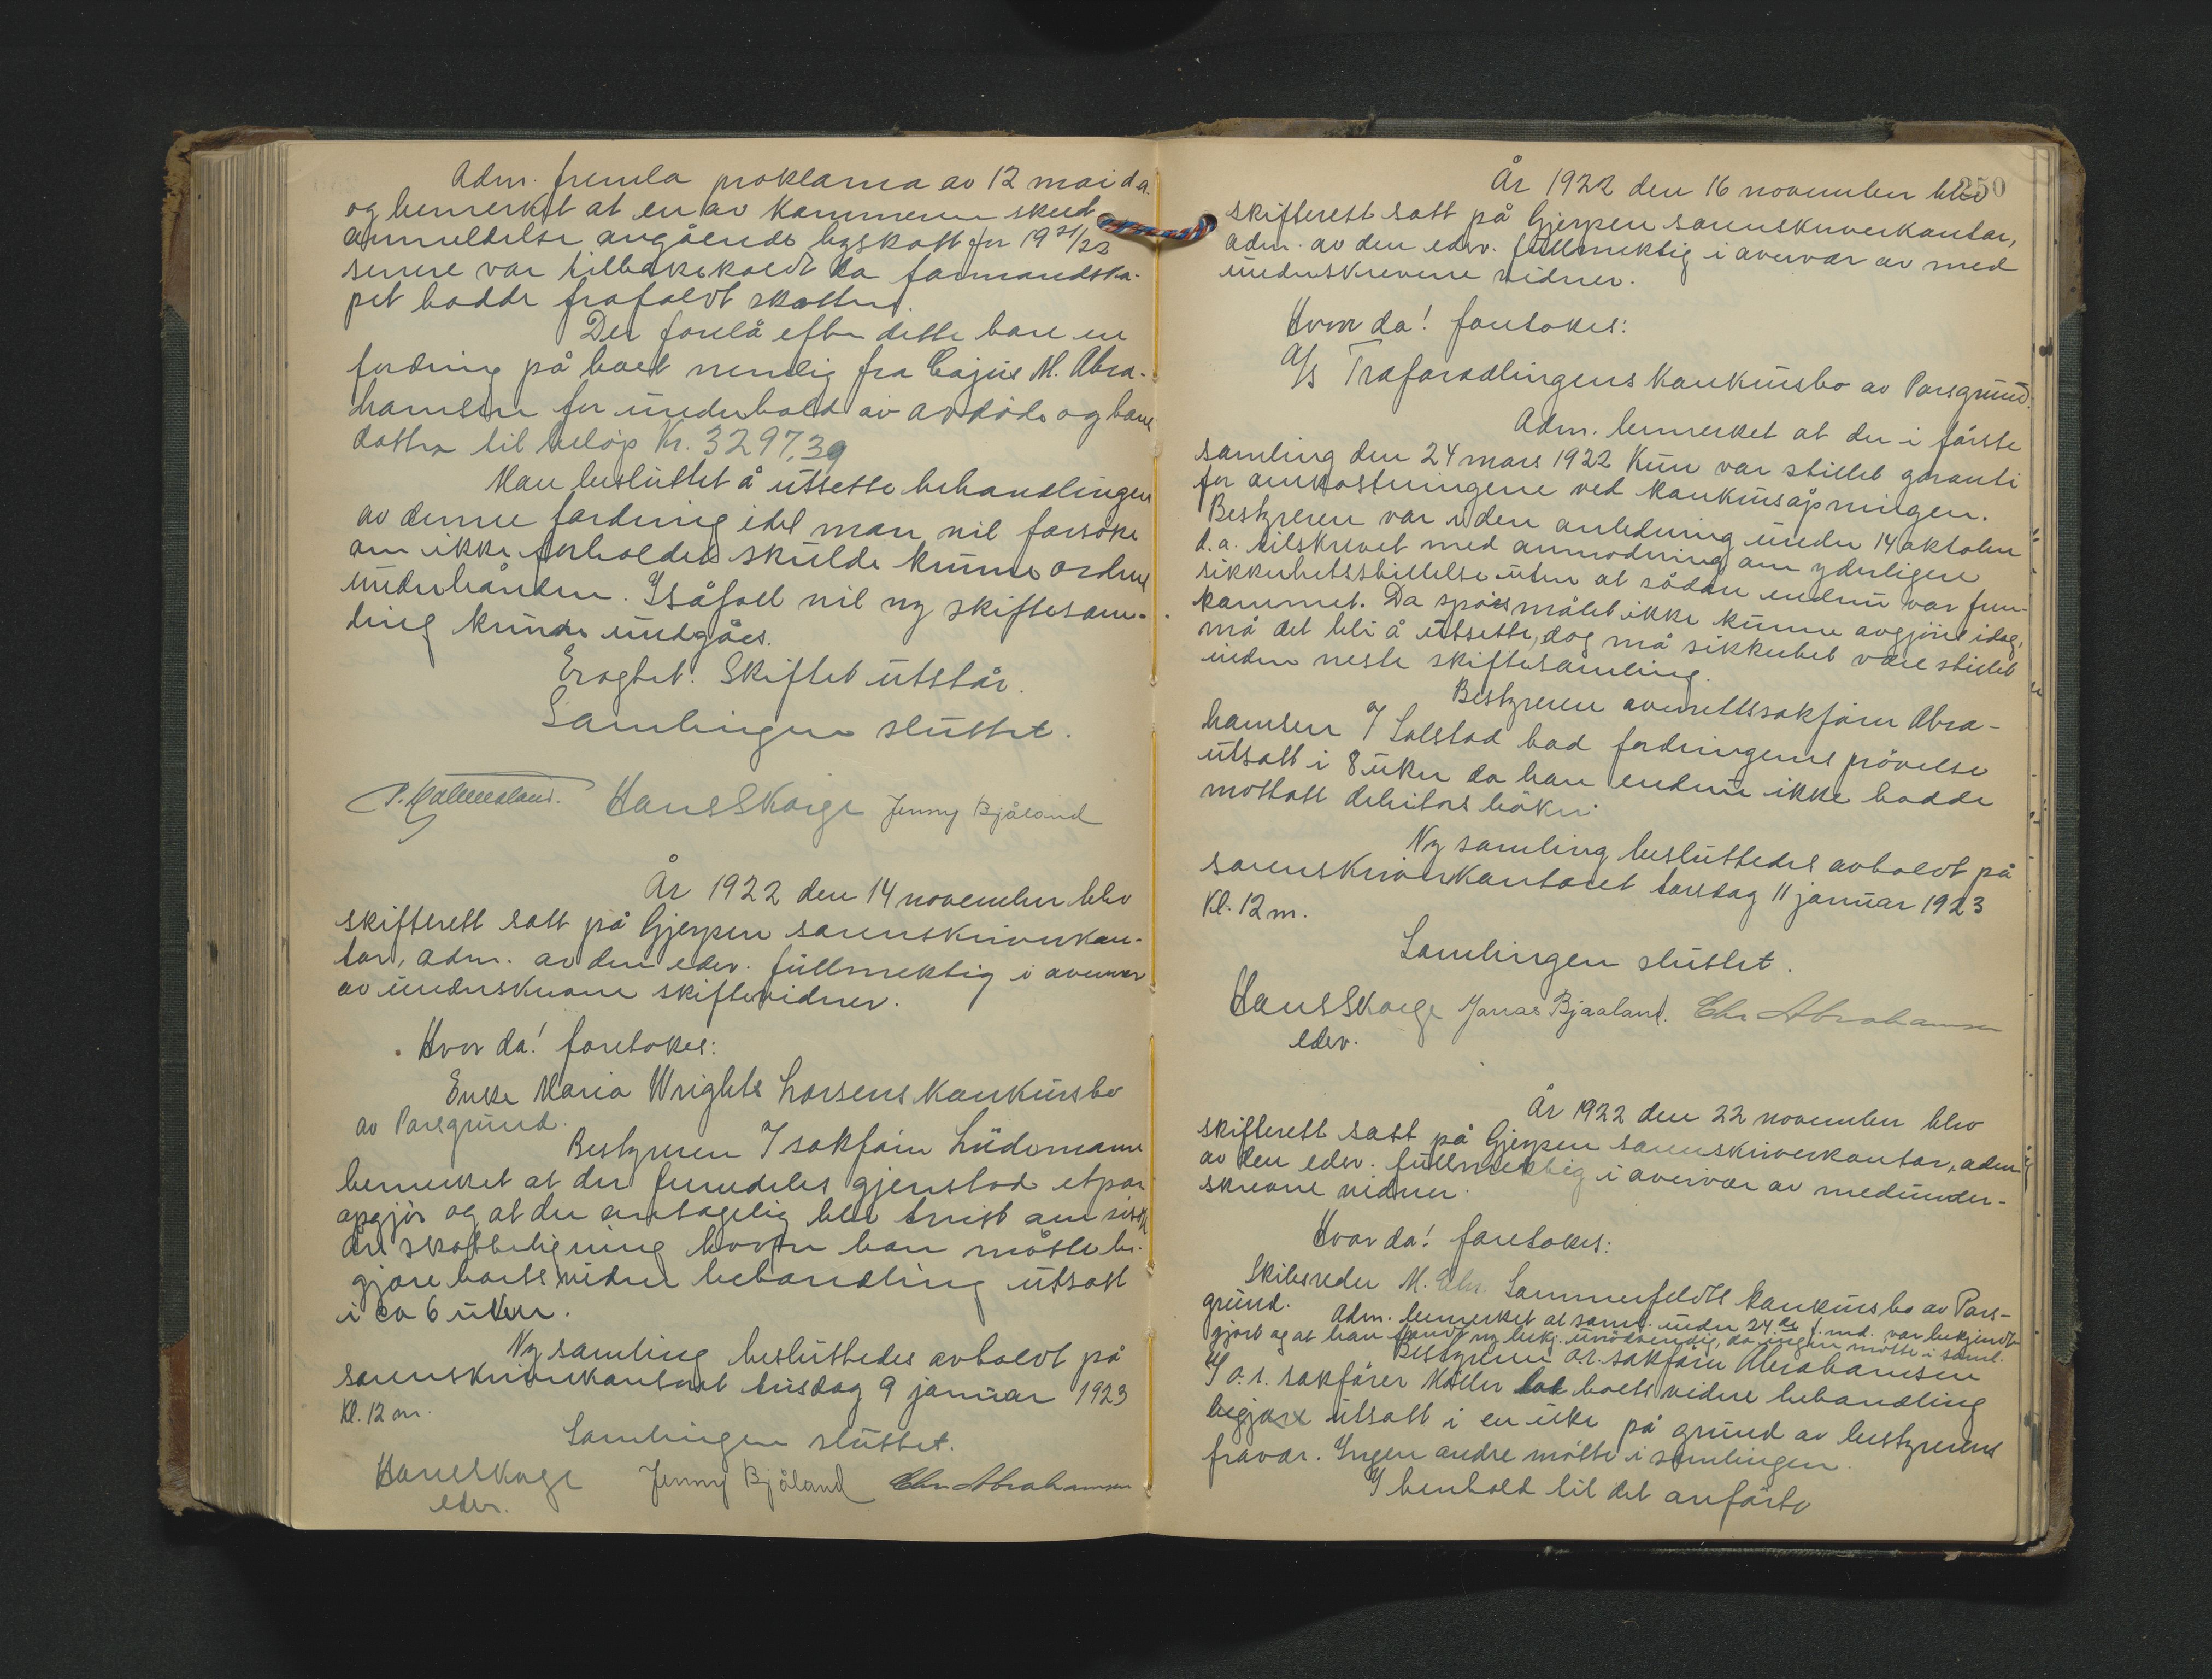 Adm. fremla proklama av 12 mai d.a.
og bemerket at en av kemneren skeet
anmeldelse angående byskatt for 19 21/22
senere var tilbakekaldt da formandska-
pet hadde frafaldt skatten.
Der forelå efter dette bare en
fordring på boet nemlig fra Cajus M. Abra-
hamsen for underhold av avdöde og hans
datter til beløp Kr. 3297,39
Man besluttet å utsette behandlingen
av denne fordring idet man vil forsøke
om ikke forholdet skulde kunne ordnes
underhånden. Isåfall vil ny skiftesam-
ling kunde undgåes.
Eragtet. Skiftet utstår.
Samlingen sluttet.
Hans Skarge Jenny Bjåland
År 1922 den 14 november blev
skifterett satt på Gjerpen sorenskriverkon-
tor, adm. av den edsv. fullmektig i overvær
av underskrevne skiftevidner.
Hvor da! foretokes:
Enke Maria Wrights Larsens konkursbo
av Porsgrund.
Bestyreren I sakfører Lüdemann
bemerket at der fremdeles gjenstod et par
opgjör og at der antagelig blev tvist om siste
års skatteligning hvorfor han måtte be-
gjære boets videre behandling utsatt
i ca 6 uker.
Ny samling besluttedes avholdt på
sorenskriverkontoret tirsdag 9 januar 1923
Kl. 12 m.
Samlingen sluttet.
Hans Skarge Jenny Bjåland Chr Abrahamsen
edsv.
250
År 1922 den 16 november blev
skifterett satt på Gjerpen sorenskriverkontor,
adm. av den edsv. fullmektig i overvær av med
underskrevene vidner.
Hvor da! foretokes:
A/S Træforædlingens konkursbo av Porsgrund.
Adm. bemerket at der i første
samling den 24 mars 1922 kun var stillet garanti
for omkostningene ved konkursåpningen.
Bestyreren var i den anledning under 14 oktober
d.a. tilskrevet med anmodning om yderligere
sikkerhetsstillelse uten at sådan endnu var frem-
kommet. Da spørsmålet ikke kunne avgjøres idag,
må det bli å utsette, dog må sikkerhet være stillet
inden neste skiftesamling.
Bestyreren overrettssakfører Abra-
hamsen I Solstad bad fordringenes prövelse
utsatt i 8 uker da han endnu ikke hadde
mottatt debitors böker.
Ny samling besluttedes avholdt på
sorenskriverkontoret torsdag 11 januar 1923
Kl. 12 m.
Samlingen sluttet.
Hans Skarge Jonas Bjaaland. Chr Abrahamsen
edsv.
År 1922 den 22 november blev
skifterett satt på Gjerpen sorenskriverkontor, adm
av den edsv. fullmektig i overvær av medunder-
skrevne vidner.
Hvor da! foretokes:
Skibsreder M. Chr. Sammerfeldts konkursbo av Pors-
grund. Adm. bemerket at saml. under 24de f. md. var bekjendt-
gjort og at han fandt ny bekj. unödvendig, da ingen mötte i saml.
Bestyreren o.r. sakfører Abrahamsen
I o.r. sakfører Møller lot boets videre behandling
begjære utsatt i en uke på grund av bestyrerens
fravær. Ingen andre mötte i samlingen.
I henhold til det anförte